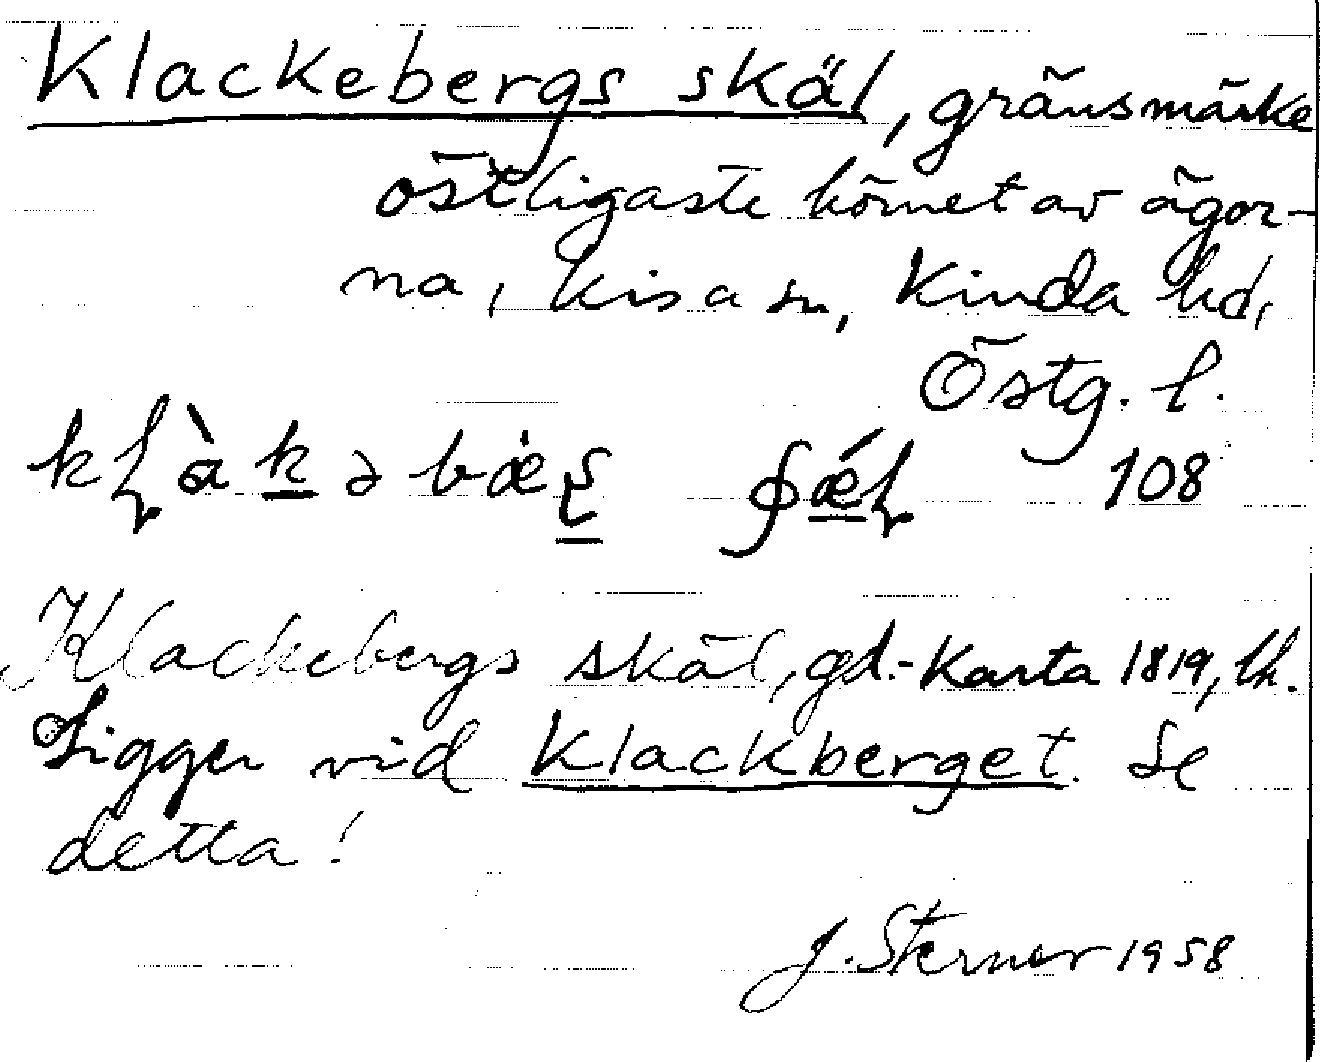 Klackebergs skäl, gränsmärke
östligaste hörnet av ägor-
na, Kisa sn, Kinda hd,
Östg. l.
108
Klackebergs skäl, gd.-Karta 1819, lh.
Ligger vid Klackberget. Se
detta!
J. Sterner 1958